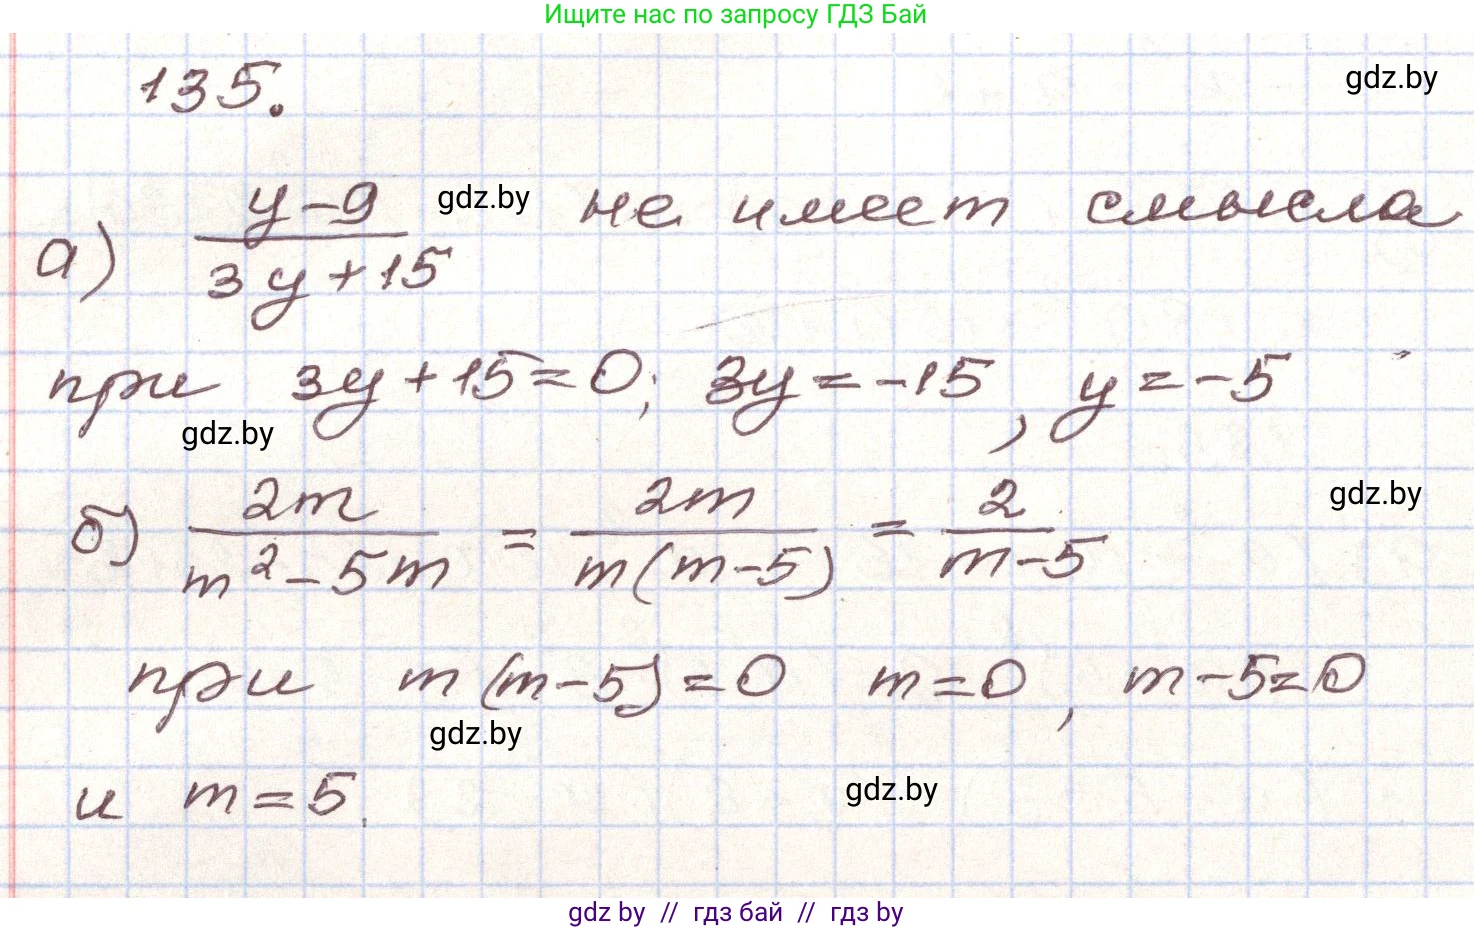 Ищите нас по запросу ГДЗ Бай
135.
gdz.by
а) (y-9)/(3y+15) gdz.by не имеет смысла
при 3y+15=0; 3y=-15, y=-5
gdz.by
б) 2m/(m²-5m) = 2m/(m(m-5)) = 2/(m-5)
gdz.by
при m(m-5)=0 m=0, m-5=0
gdz.by
и m=5.
gdz.by
gdz by // гдз бай // гдз by